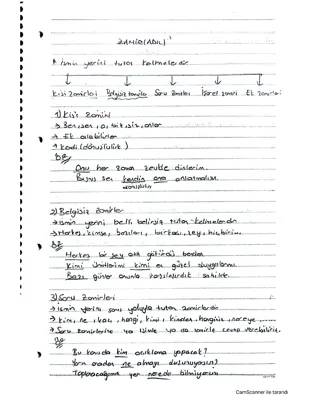 ZAMİR (ADIL)
* ismin yerini tutan kelimelerdir
Kişi Zamirleri Belgisiz Zamirler Soru Zamirleri İşaret zamiri Ek Zamirleri
1) Kişi Zamiri
→ Ben, sen, o, biz, siz, onlar
→ Ek alabilirler
* Kendi (dönüşlülük)
Onu her zaman zevkle dinlerim.
sen kendin ona anlatmalısın.
dönüşlülük
2) Belgisiz Zamirler
→ ismin yerini belli belirsiz tutan kelimelerdir
→ Herkes, kimse, bazıları, birkaçı, şey, hiçbiri
Herkes bir şey
Kimi ünitlerimi kimi en güzel duygularımı
Bazı günler onunla
3) Soru Zamirleri
→ ismin yerini soru yoluyla tutan zamirlerdir
→ Kim, ne, kaç, hangi, kimi, kimden, hangisi, nereye
→ Soru zamirlerine ya isimle ya da zamirle cevap verebiliriz
Bu konuda kim açıklama yapacak?
ne almayı düşünüyorsun?
her nerede bilmiyorum
CamScanner ile tarandı